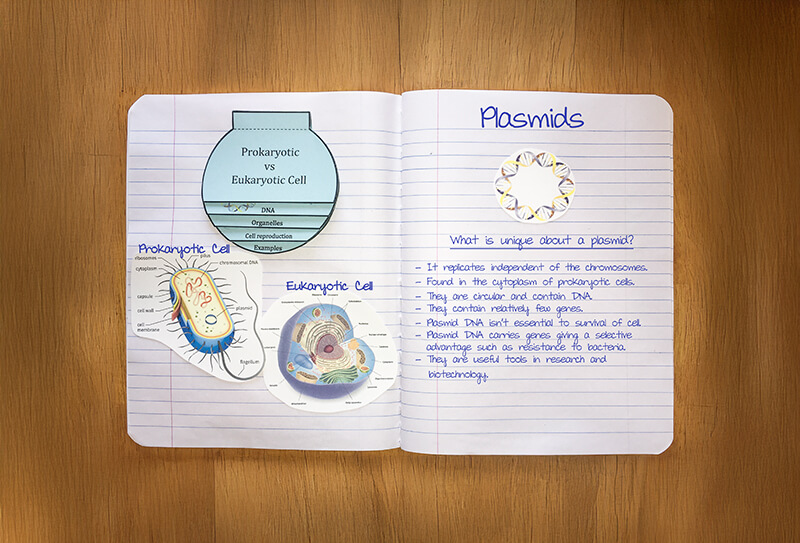 Prokaryotic
vs
Eukaryotic Cell
DNA
Organelles
Cell reproduction
Examples
Prokaryotic Cell
ribosomes
pilus
cytoplasm
chromosomal DNA
capsule
cell wall
cell
membrane
plasmid
flagellum
Eukaryotic Cell
Plasmids
What is unique about a plasmid?
- It replicates independent of the chromosomes.
- Found in the cytoplasm of prokaryotic cells.
- They are circular and contain DNA.
- They contain relatively few genes.
- Plasmid DNA isn't essential to survival of cell.
- Plasmid DNA carries genes giving a selective
advantage such as resistance to bacteria.
- They are useful tools in research and
biotechnology.